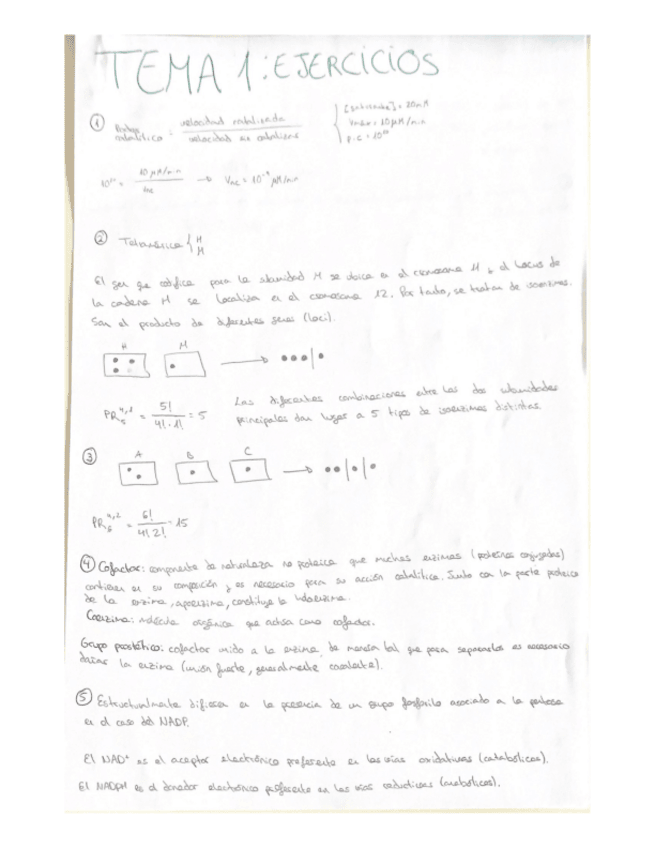 TEMA 1: EJERCICIOS
① Poder catalítico = velocidad catalizada / velocidad sin catalizar
[Sustrato] = 20 mM
Vmax = 10 μM/min
10 μM/min → Vnc = μM/min
② Tetramérica { H M
El gen que codifica para la subunidad H se ubica en el cromosoma y el locus de
la cadena M se localiza en el cromosoma 12. Por tanto, se tratan de isoenzimas.
Son el producto de diferentes genes (loci).
H M
PR₅⁴,¹ = 5! / 4! · 1! = 5
Las diferentes combinaciones entre las dos subunidades
principales dan lugar a 5 tipos de isoenzimas distintas.
③ A B C
PR₆⁴,² = 6! / 4! 2! = 15
④ Cofactor: componente de naturaleza no proteica que muchas enzimas (proteínas conjugadas)
contienen en su composición y es necesario para su acción catalítica. Junto con la parte proteica
de la enzima, apoenzima, constituye la holoenzima.
Coenzima: molécula orgánica que actúa como cofactor.
Grupo prostético: cofactor unido a la enzima de manera tal que para separarlos es necesario
dañar la enzima (unión fuerte, generalmente covalente).
⑤ Estructuralmente difieren en la presencia de un grupo fosforilo asociado a la pentosa
en el caso del NADP.
El NAD⁺ es el aceptor electrónico preferente en las vías oxidativas (catabólicas).
El NADPH es el donador electrónico preferente en las vías reductivas (anabólicas).